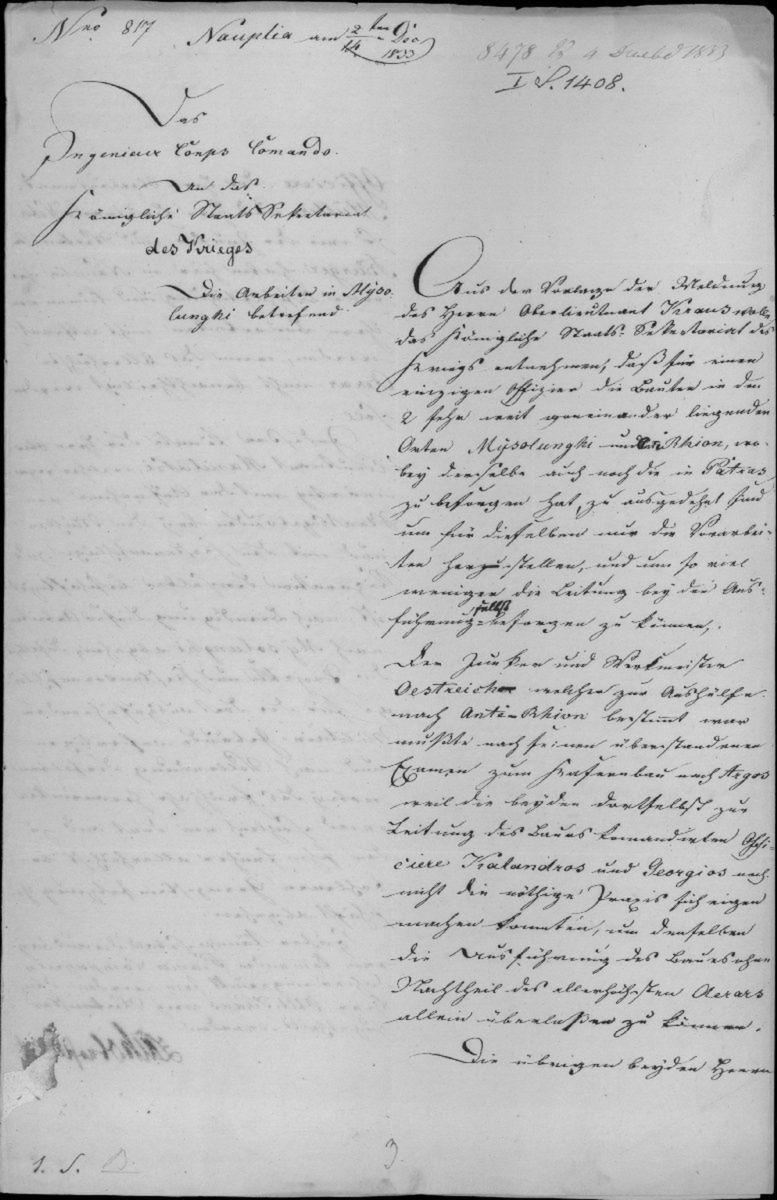 Nro 817
Nauplia am 2ten/14 Dec 1833
8478 4 Decbr 1833
I S. 1408.
Das
Ingenieur Corps Comando.
An das
Königliche Staats Sekretariat
des Krieges
Die Arbeiten in Myso
lunghi betrefend
Aus der Vorlage der Meldung
des Herrn Oberlieutnant Krauswalle
das Königliche Staats-Sekretariat des
Kriegs entnehmen, daß für einen
einzigen Offizier die Bauten in den
2 sehr weit voneinander liegenden
Orten Mysolunghi und Rhion, wo-
bey derselbe auch noch die in Patras
zu besorgen hat, zu ausgedehnt sind
um für dieselben nur die Vorarbei-
ten herzustellen, und um so viel
weniger die Leitung bey der Aus-
führung selbst besorgen zu können,.
Der Junker und Werkmeister
Oestreicher welcher zur Aushülfe
nach Anti-Rhion bestimmt war
mußte nach seinen überstandenen
Examen zum Kasernbau nach Argos
weil die beyden dortselbst zur
Leitung des Baues komandirten Offi-
ciere Kalandros und Georgios noch
nicht die nöthige Praxis sich eigen
machen konnten, um denselben
die Ausführung des Baues ohne
Nachtheil des allerhöchsten Aerars
allein überlaßen zu können.
Die übrigen beyden Herrn
1. S.
3